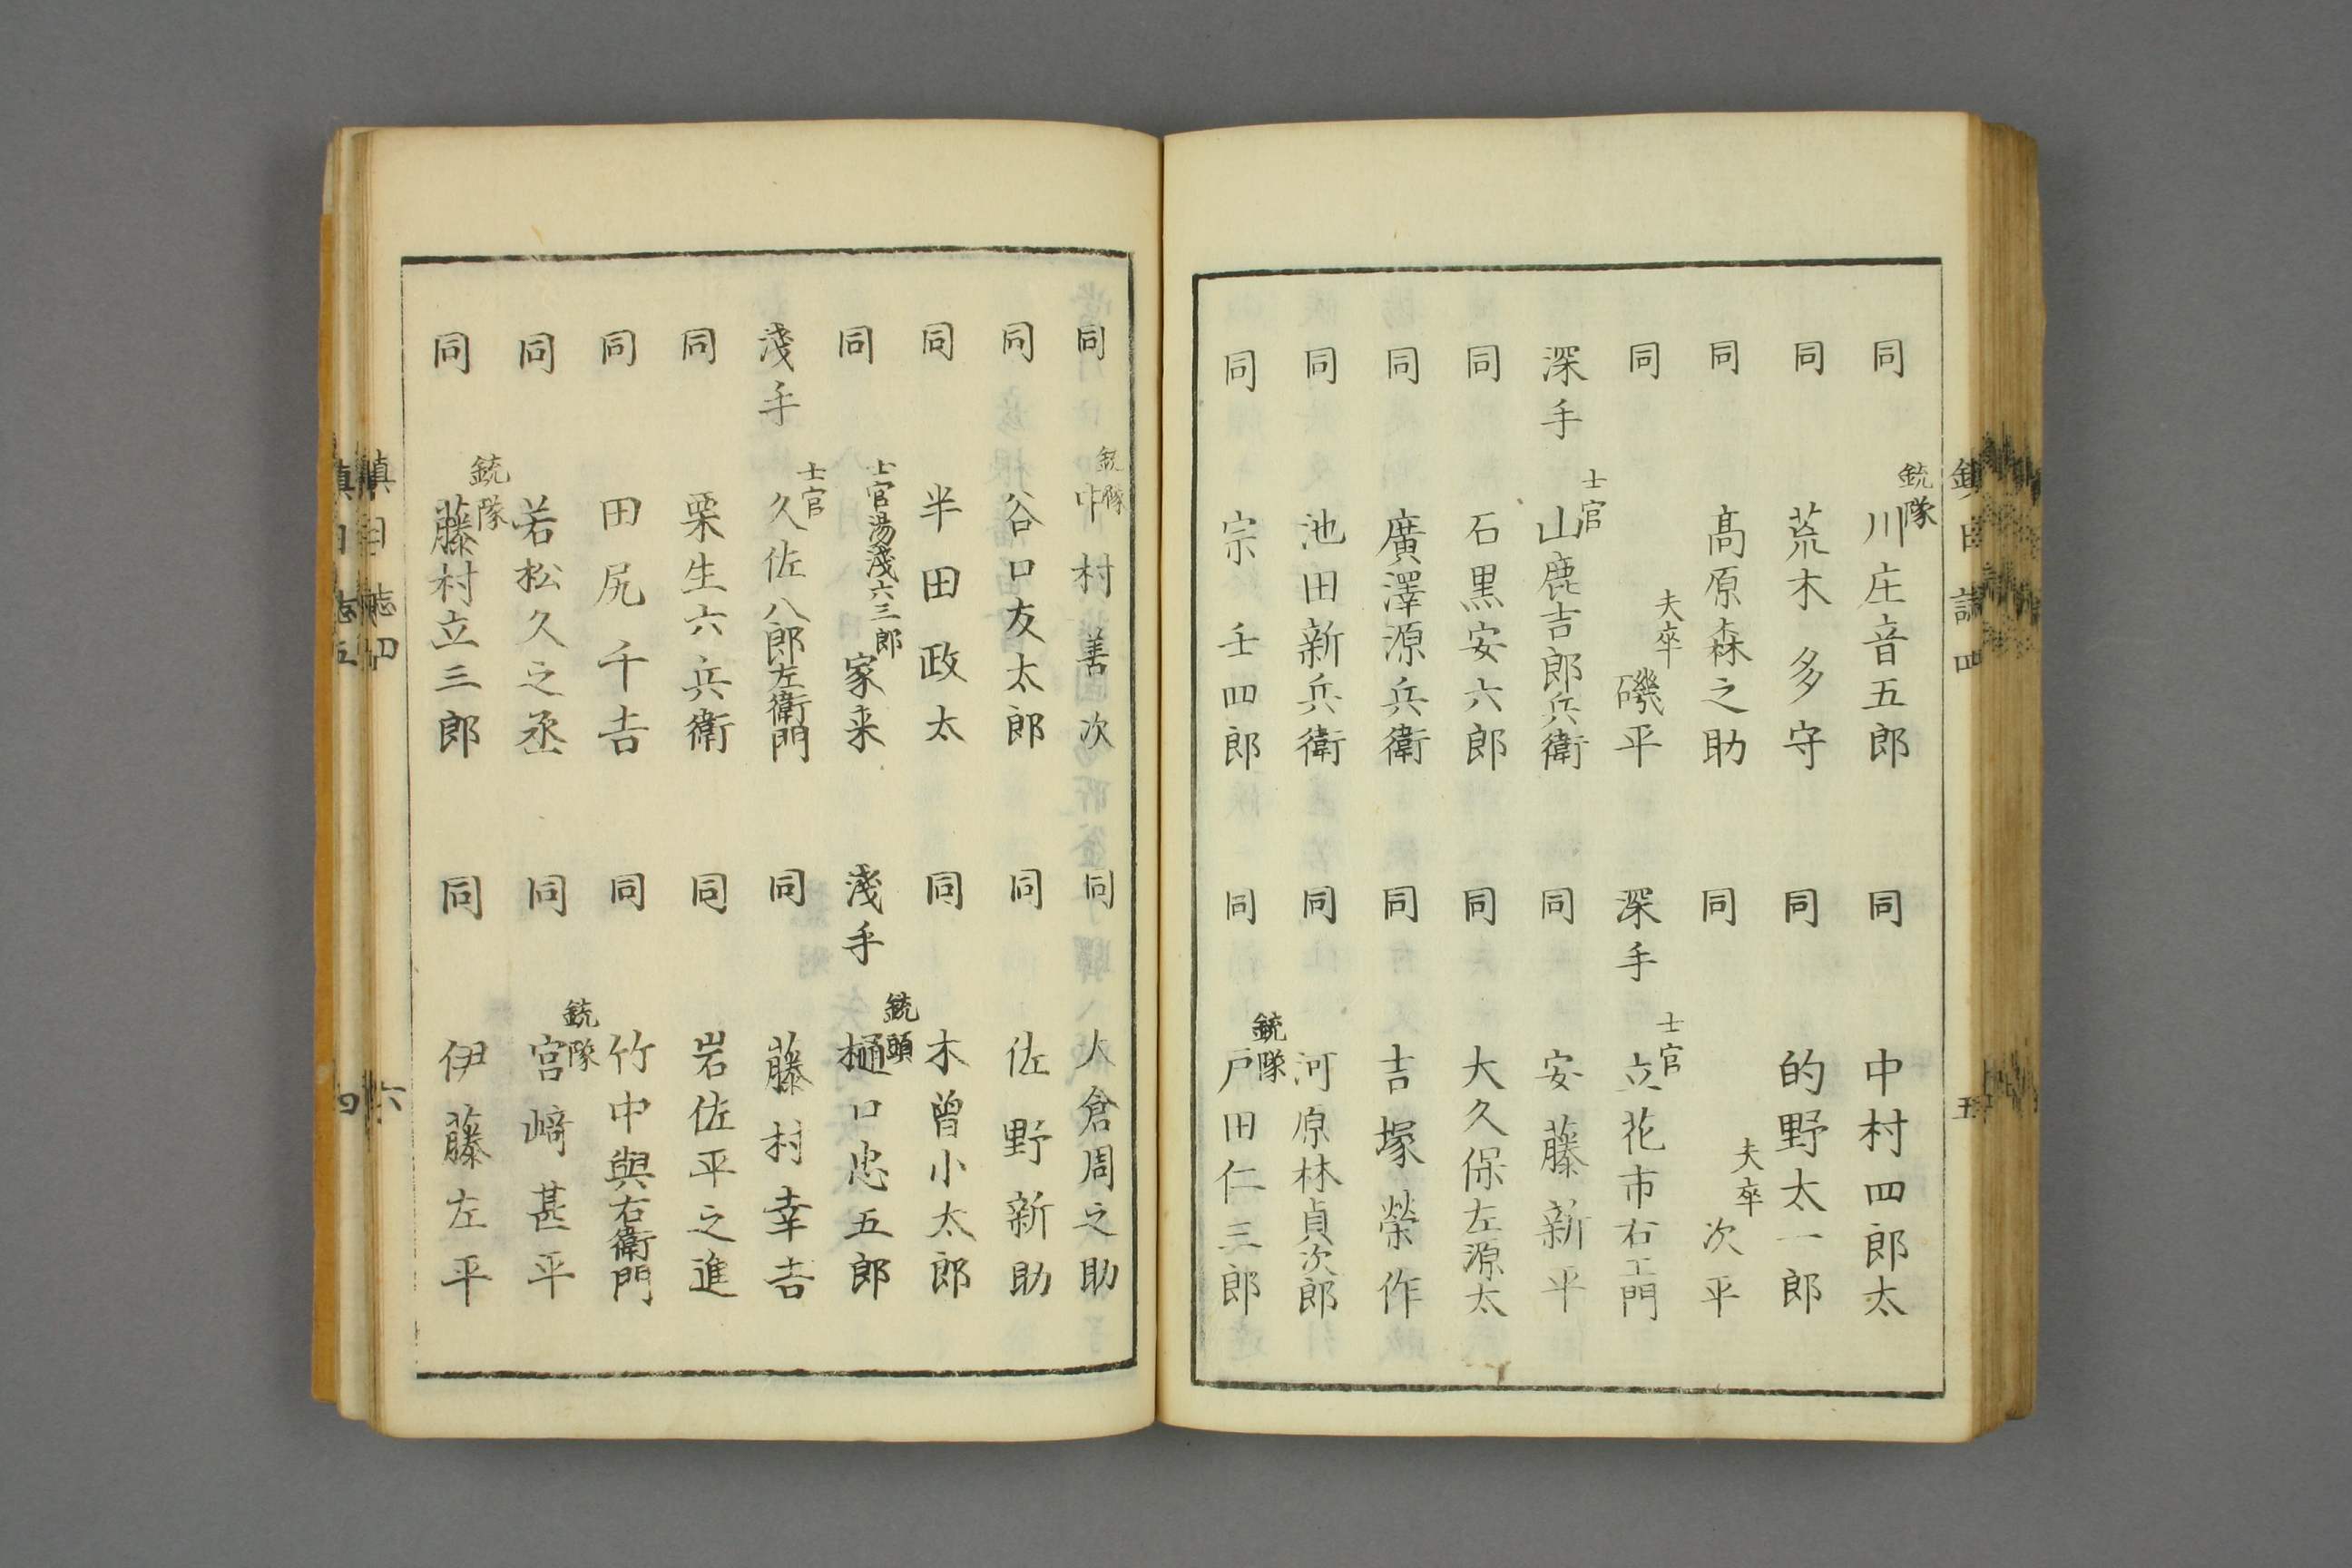 鎮日誌四
五
同 銃隊 川庄音五郎 同 中村四郎太
同 荒木多守 同 的野太一郎
同 髙原森之助 同 夫卒 次平
同 夫卒 磯平 深手 士官 立花市右エ門
深手 士官 山鹿吉郎兵衛 同 安藤新平
同 石黒安六郎 同 大久保左源太
同 廣澤源兵衛 同 吉塚榮作
同 池田新兵衛 同 河原林貞次郎
同 宗壬四郎 同 銃隊 戸田仁三郎
同 銃隊 中村善次 同 大倉周之助
同 谷口友太郎 同 佐野新助
同 半田政太 同 木曽小太郎
同 士官湯淺六三郎 家来 淺手 銃頭 樋口忠五郎
淺手 士官 久佐八郎左衛門 同 藤村幸吉
同 栗生六兵衛 同 岩佐平之進
同 田尻千吉 同 竹中與右衛門
同 若松久之丞 同 銃隊 宮﨑甚平
同 銃隊 藤村立三郎 同 伊藤左平
六
四